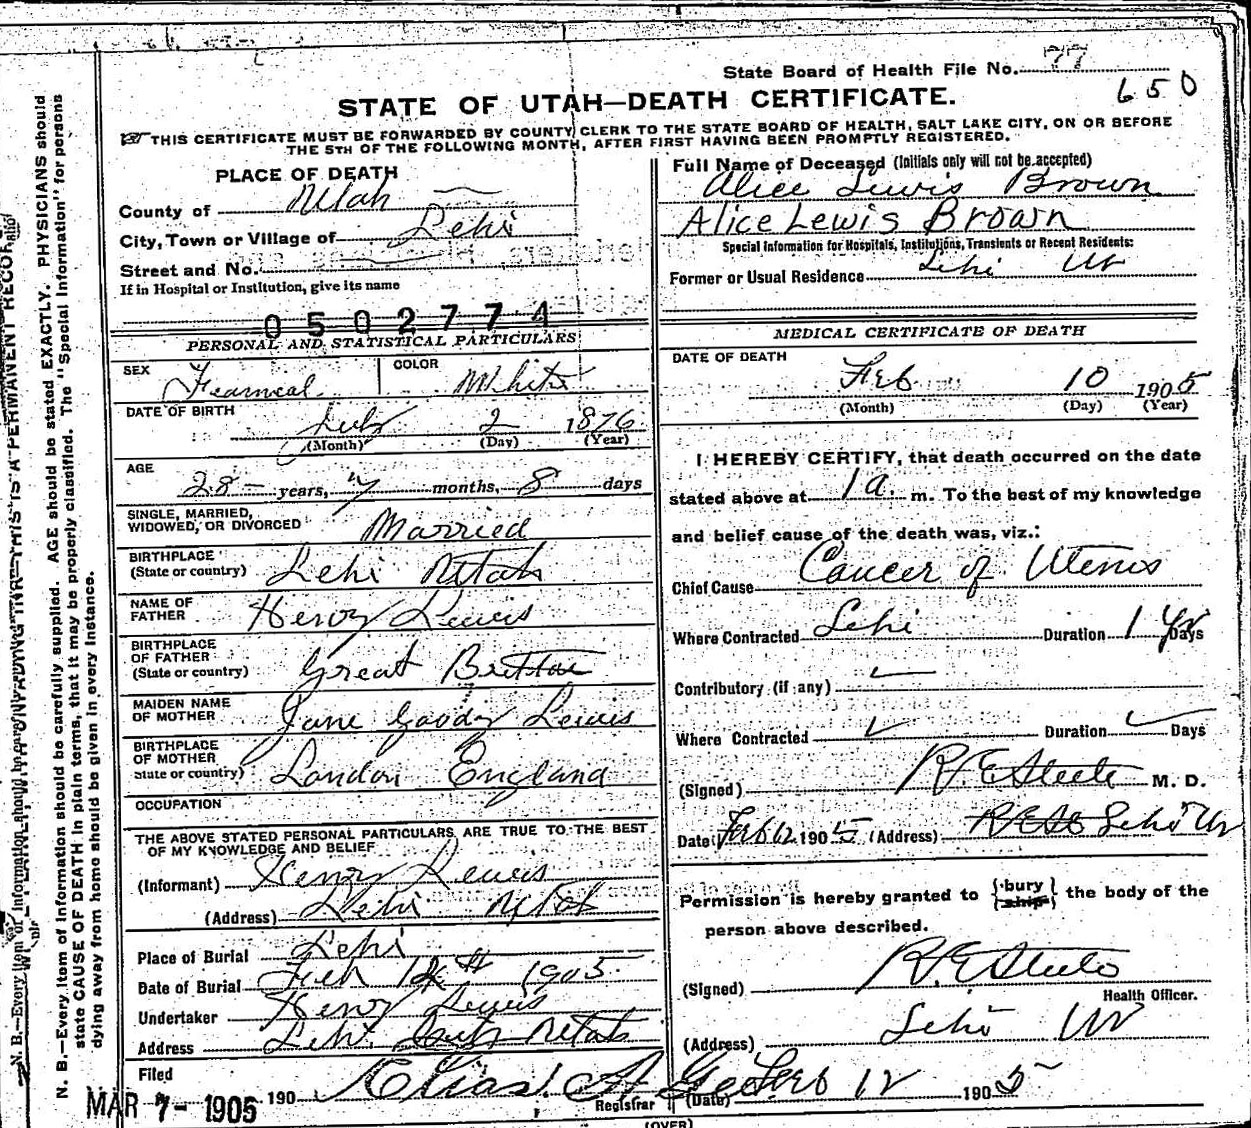 State Board of Health File No. 77
650
STATE OF UTAH—DEATH CERTIFICATE.
THIS CERTIFICATE MUST BE FORWARDED BY COUNTY CLERK TO THE STATE BOARD OF HEALTH, SALT LAKE CITY, ON OR BEFORE
THE 5TH OF THE FOLLOWING MONTH, AFTER FIRST HAVING BEEN PROMPTLY REGISTERED.
PLACE OF DEATH
County of Utah
City, Town or Village of Lehi
Street and No.
If in Hospital or Institution, give its name
0502774
Full Name of Deceased (Initials only will not be accepted)
Alice Lewis Brown
Alice Lewis Brown
Special Information for Hospitals, Institutions, Transients or Recent Residents:
Former or Usual Residence Lehi Ut
PERSONAL AND STATISTICAL PARTICULARS
SEX Feameal COLOR White
DATE OF BIRTH July 2 1876
(Month) (Day) (Year)
AGE
28 years, 7 months, 8 days
SINGLE, MARRIED,
WIDOWED, OR DIVORCED Married
BIRTHPLACE
(State or country) Lehi Utah
NAME OF
FATHER Henry Lewis
BIRTHPLACE
OF FATHER
(State or country) Great Brittan
MAIDEN NAME
OF MOTHER Jane Goody Lewis
BIRTHPLACE
OF MOTHER
State or country) London England
OCCUPATION
THE ABOVE STATED PERSONAL PARTICULARS ARE TRUE TO THE BEST
OF MY KNOWLEDGE AND BELIEF
(Informant) Henry Lewis
(Address) Lehi Utah
Place of Burial Lehi
Date of Burial Feb 12th 1905
Undertaker Henry Lewis
Address Lehi Utah
Filed
MAR 7- 1905 190
Registrar
MEDICAL CERTIFICATE OF DEATH
DATE OF DEATH
Feb 10 1905
(Month) (Day) (Year)
I HEREBY CERTIFY, that death occurred on the date
stated above at 1 a. m. To the best of my knowledge
and belief cause of the death was, viz.:
Chief Cause Cancer of Uterus
Where Contracted Lehi Duration 1 Yr Days
Contributory (if any)
Where Contracted Duration Days
(Signed) R E Steele M. D.
Date Feb 12 1905 (Address) Lehi Ut
Permission is hereby granted to {bury / ship} the body of the
person above described.
(Signed) R. E Steele
Health Officer.
(Address) Lehi Ut
(Date) Feb 12 1905
(OVER)
N. B.—Every item of information should be carefully supplied. AGE should be stated EXACTLY. PHYSICIANS should
state CAUSE OF DEATH in plain terms, that it may be properly classified. The "Special Information" for persons
dying away from home should be given in every instance.